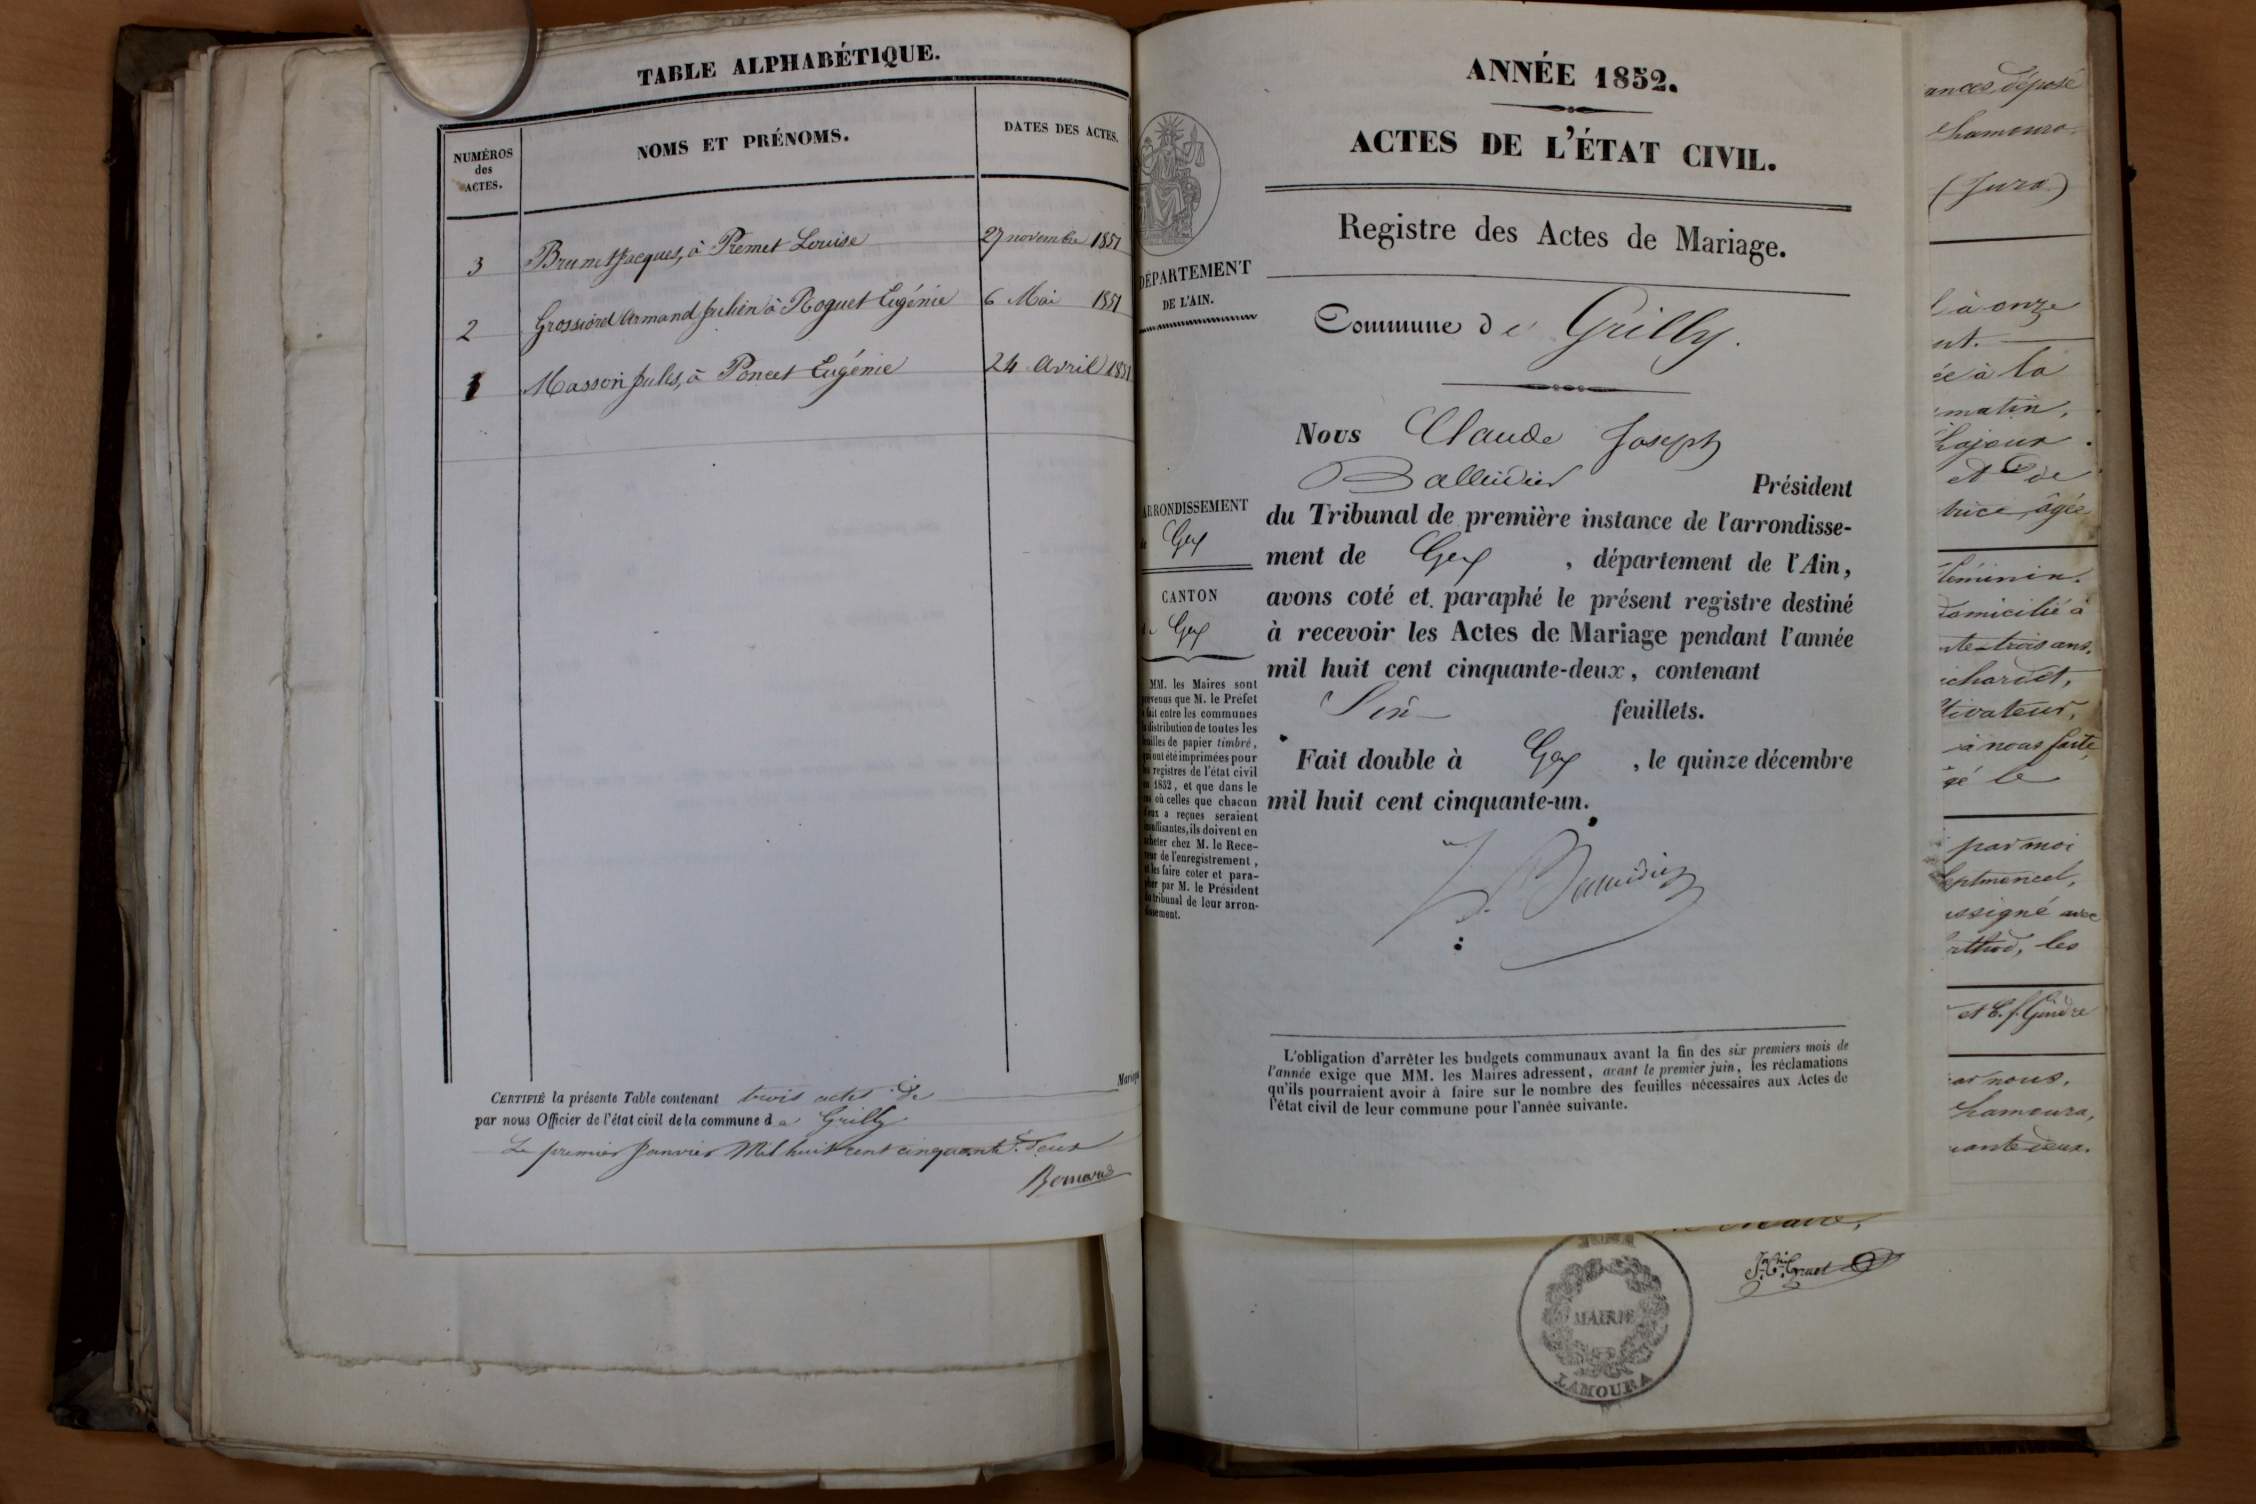 TABLE ALPHABÉTIQUE.
NUMÉROS
des
ACTES.
NOMS ET PRÉNOMS.
DATES DES ACTES.
3 Brunet Jacques, à Premet Louise 27 novembre 1851
2 Grossiord Armand Julien à Roguet Eugénie 6 Mai 1851
1 Masson Jules, à Poncet Eugénie 24 Avril 1851
CERTIFIÉ la présente Table contenant trois actes de Mariage
par nous Officier de l'état civil de la commune de Grilly
Le premier Janvier Mil huit cent cinquante deux
ANNÉE 1852.
ACTES DE L'ÉTAT CIVIL.
Registre des Actes de Mariage.
DÉPARTEMENT
DE L'AIN.
Commune de Grilly.
ARRONDISSEMENT
de Gex
CANTON
de Gex
MM. les Maires sont
prévenus que M. le Préfet
a fait entre les communes
la distribution de toutes les
feuilles de papier timbré,
qui ont été imprimées pour
les registres de l'état civil
de 1852, et que dans le
cas où celles que chacun
d'eux a reçues seraient
insuffisantes, ils doivent en
acheter chez M. le Rece-
veur de l'enregistrement,
et les faire coter et para-
pher par M. le Président
du tribunal de leur arron-
dissement.
Nous Claude Joseph
Balleidier Président
du Tribunal de première instance de l'arrondisse-
ment de Gex, département de l'Ain,
avons coté et paraphé le présent registre destiné
à recevoir les Actes de Mariage pendant l'année
mil huit cent cinquante-deux, contenant
feuillets.
Fait double à Gex, le quinze décembre
mil huit cent cinquante-un.
L'obligation d'arrêter les budgets communaux avant la fin des six premiers mois de
l'année exige que MM. les Maires adressent, avant le premier juin, les réclamations
qu'ils pourraient avoir à faire sur le nombre des feuilles nécessaires aux Actes de
l'état civil de leur commune pour l'année suivante.
déposé
(Jura)
à onze
à la
matin,
de
âgée
domicilié à
trois ans,
à nous faite
le
par moi
les
et C. J. Gindre
nous,
JURA
MAIRIE
LAMOURA